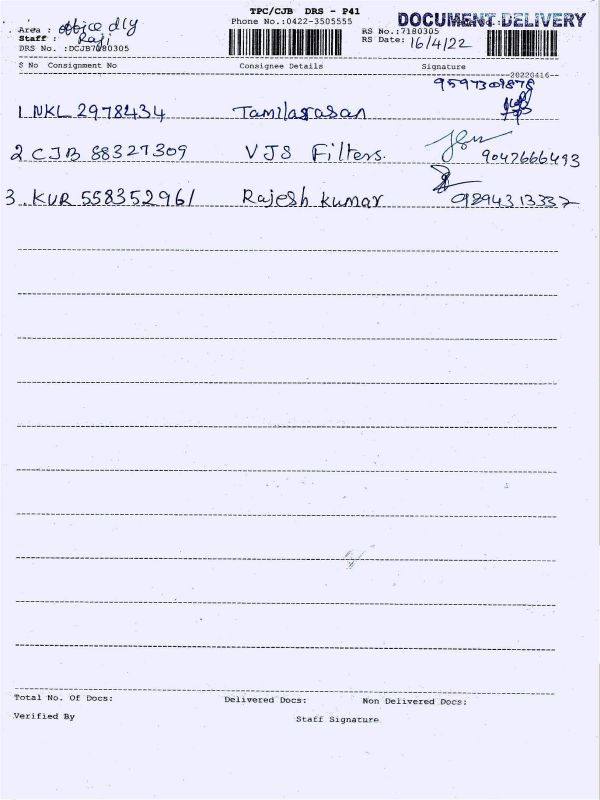 TPC/CJB DRS - P41
DOCUMENT DELIVERY
Phone No.:0422-3505555
Area : office dly
Staff : Raji
DRS No. :DCJB7180305
RS No.:7180305
RS Date: 16/4/22
S No Consignment No Consignee Details Signature
20220416
9597301878
1 NKL 2978434 Tamilarasan
2 CJB 88327309 VJS Filters. 9047666493
3. KUR 558352961 Rajesh kumar 9894313337
Total No. Of Docs: Delivered Docs: Non Delivered Docs:
Verified By Staff Signature